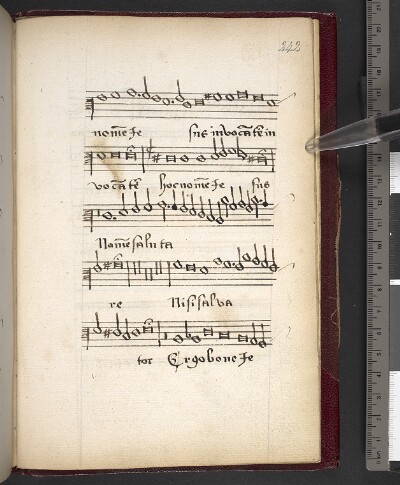 242
nom̄e Je sus invocāte in
vocāte hoc nom̄e Je sus
Nom̄e saluta
re Nisi salva
tor Ergo bone Je